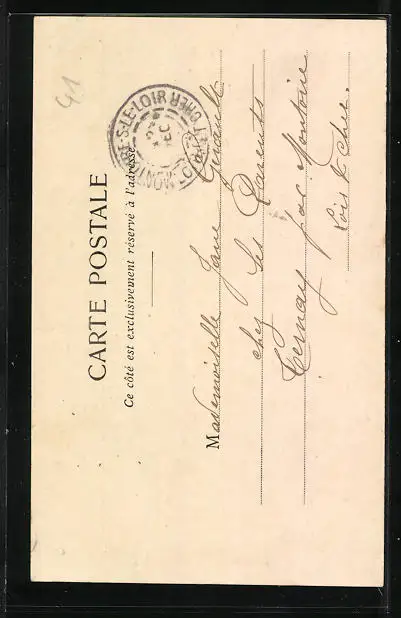 41
CARTE POSTALE
Ce côté est exclusivement réservé à l'adresse
MONTOIRE-S-LE-LOIR LOIR-ET-CHER
DEC
Mademoiselle Jane Girault
chez ses Parents
Ternay par Montoire
Loir & Cher.